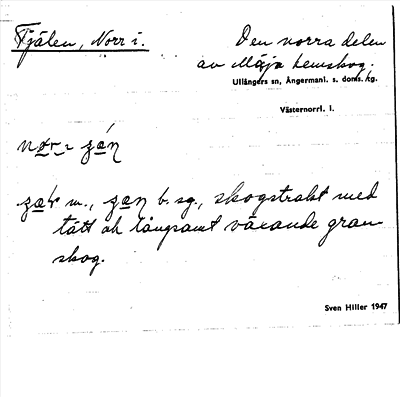 Fjälen, Norr i.
Den norra delen
av Mäja hemskog.
Ullångers sn, Ångermanl. s. doms./tg.
Västernorrl. l.
m., b. sg., skogstrakt med
tätt ok långsamt växande gran-
skog.
Sven Hiller 1947